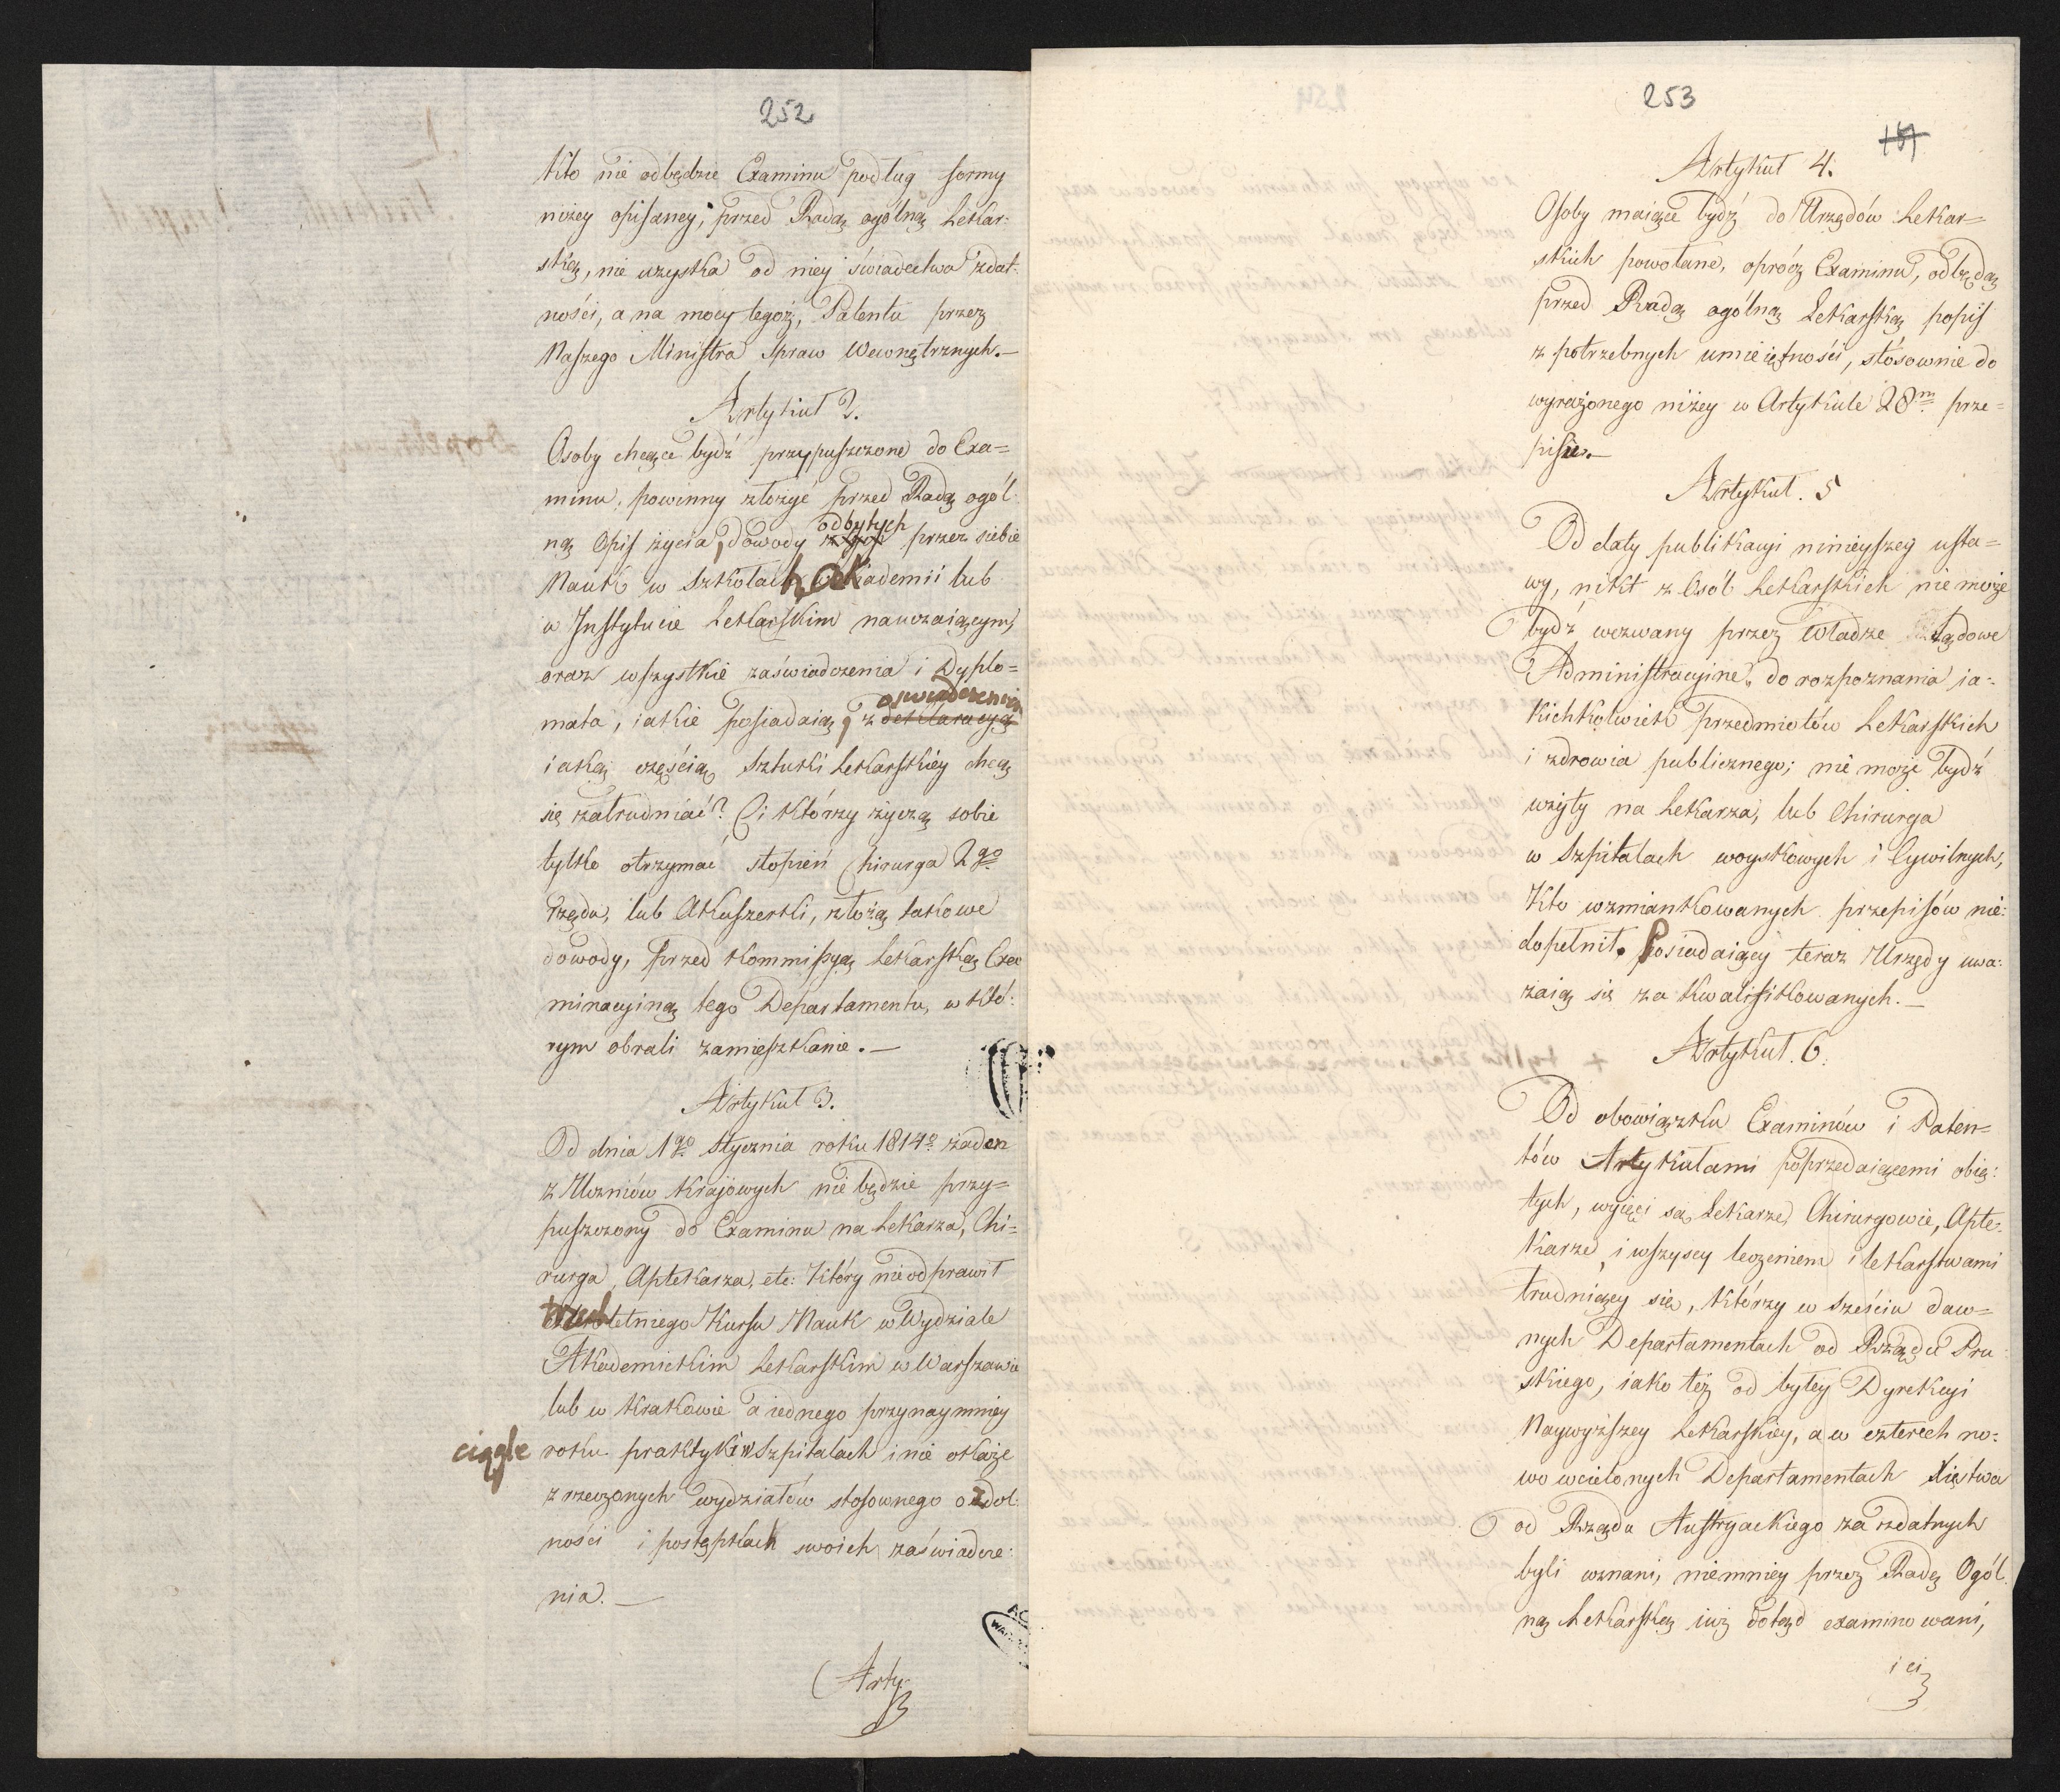 252
Kto nie odbędzie Examinu podług formy
niżey opisaney, przed Radą ogólną Lekar:
ską, nie uzyska od niey świadectwa zdat:
ności, a na mocy tegoż, Patentu przez
Naszego Ministra Spraw Wewnętrznych.—
Artykuł 2.
Osoby chcące bydź przypuszczone do Exa=
minu, powinny złożyć przed Radą ogól
ną Opis życia, dowody odbytych przez siebie
Nauk w Szkołach, Akademii lub
w Instytucie Lekarskim nauczaiącym,
oraz wszystkie zaświadczenia i Dyplo=
oświadczeniem
mata, iakie posiadaią, z deklaracyą
iaką częścią Sztuki Lekarskiey chcą
się zatrudniać? Ci którzy życzą sobie
tylko otrzymać stopień Chirurga 2go
rzędu, lub Akuszerki, złożą takowe
dowody, przed Kommissyą Lekarską Exa
minacyiną tego Departamentu, w któ:
rym obrali zamieszkanie.—
Artykuł 3.
Od dnia 1go Stycznia roku 1814o żaden
z Uczniów Krajowych nie będzie przy=
puszczony do Examinu na Lekarza, Chi=
rurga, Aptekarza, etc: który nie odprawił
trzechletniego Kursu Nauk w Wydziale
Akademickim Lekarskim w Warszawie
lub w Krakowie a iednego przynaymniey
ciągle roku praktyki w Szpitalach i nie okaże
z rzeczonych wydziałów stosownego o zdol:
ności i postępkach swoich zaświadcze:
nia.—
Arty:
253
Artykuł 4.
Osoby maiące bydź do Urzędów Lekar=
skich powołane, oprócz Examinu, odbędą
przed Radą ogólną Lekarską popis
z potrzebnych umieiętności, stósownie do
wyrażonego niżey w Artykule 28m prze=
pisu.—
Artykuł. 5
Od daty publikacyi ninieyszey usta=
wy, nikt z Osób Lekarskich nie może
bydź wezwany przez Władze Rządowe
Administracyine, do rozpoznania ia:
kichkolwiek przedmiotów Lekarskich
i zdrowia publicznego; nie może bydź
użyty na Lekarza, lub Chirurga
w Szpitalach woyskowych i Cywilnych,
Kto wzmiankowanych przepisów nie:
dopełnił. Posiadaiący teraz Urzędy uwa:
żaią się za kwalifikowanych.—
Artykuł. 6.
Od obowiązku Examinów i Paten=
tów Artykułami poprzedaiącemi obię:
tych, wyięci są Lekarze, Chirurgowie, Apte:
karze, i wszyscy leczeniem i lekarstwami
trudniący się, którzy w sześciu daw=
nych Departamentach od Rządu Pru:
skiego, iako też od byłey Dyrekcyi
Naywyższey Lekarskiey, a w czterech no:
wo wcielonych Departamentach Xięstwa
od Rządu Austryackiego za zdatnych
byli uznani, niemniey przez Radę Ogól
ną Lekarską iuż dotąd examinowani,
i ci